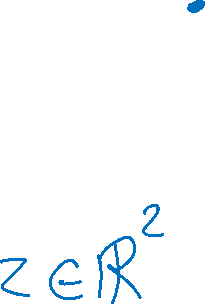 z ∈ ℝ²